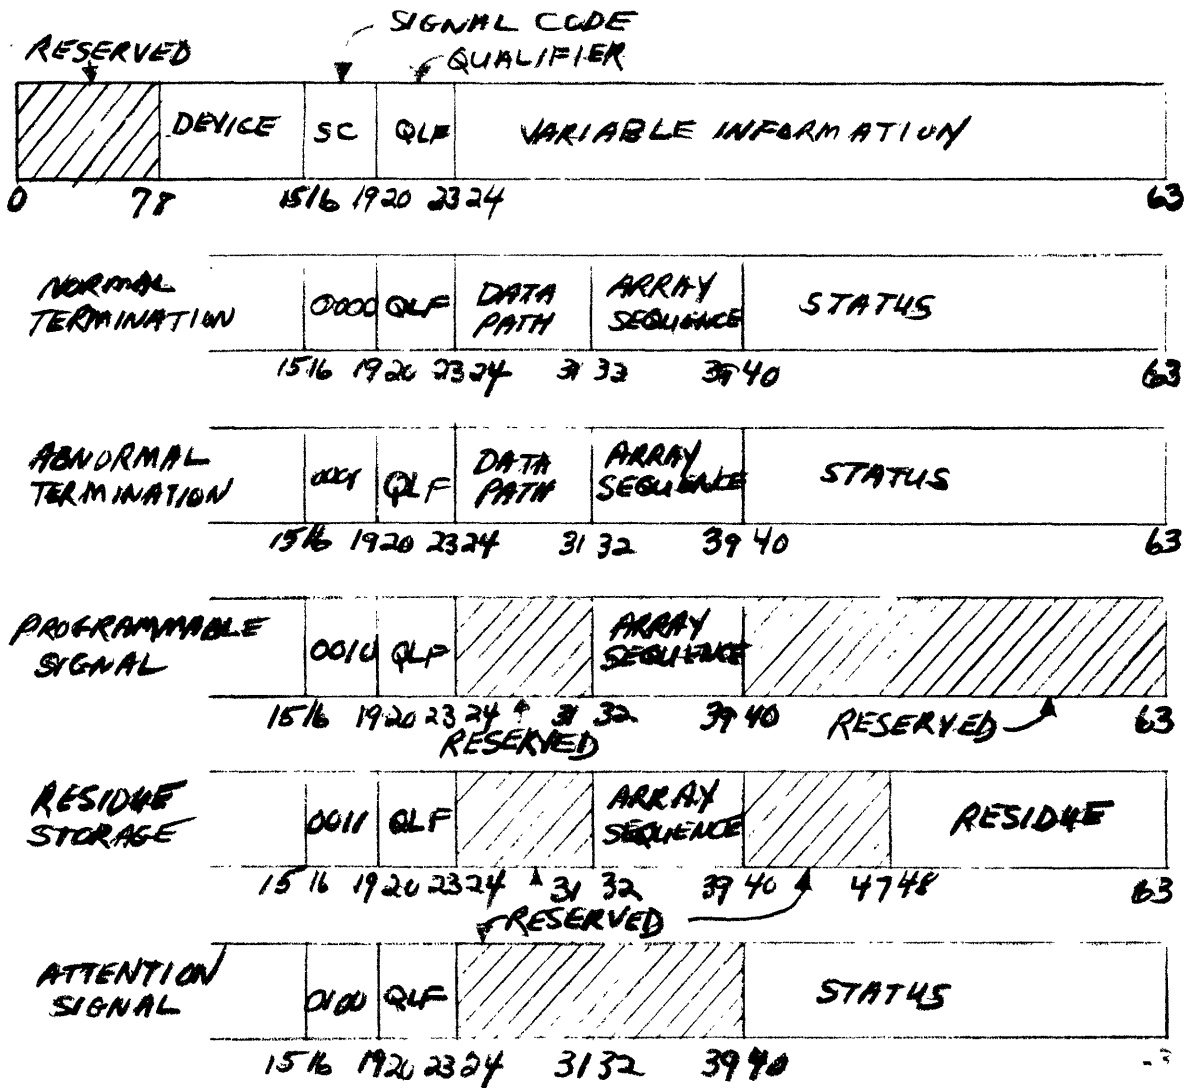 SIGNAL CODE
RESERVED
QUALIFIER
DEVICE SC QLF VARIABLE INFORMATION
0 7 8 15 16 19 20 23 24 63
NORMAL
TERMINATION
0000 QLF DATA
PATH ARRAY
SEQUENCE STATUS
15 16 19 20 23 24 31 32 39 40 63
ABNORMAL
TERMINATION
0001 QLF DATA
PATH ARRAY
SEQUENCE STATUS
15 16 19 20 23 24 31 32 39 40 63
PROGRAMMABLE
SIGNAL
0010 QLF ARRAY
SEQUENCE
15 16 19 20 23 24 31 32 39 40 63
RESERVED RESERVED
RESIDUE
STORAGE
0011 QLF ARRAY
SEQUENCE RESIDUE
15 16 19 20 23 24 31 32 39 40 47 48 63
RESERVED
ATTENTION
SIGNAL
0100 QLF STATUS
15 16 19 20 23 24 31 32 39 40